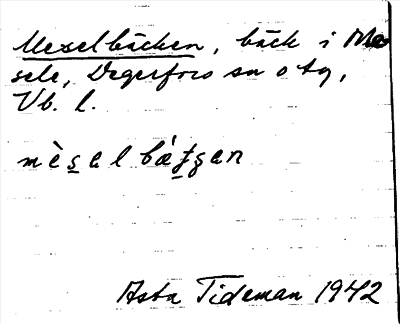 Meselbäcken, bäck i Me-
sele, Degerfors sn o tg,
Vb. l.
mèsel
Asta Tideman 1942